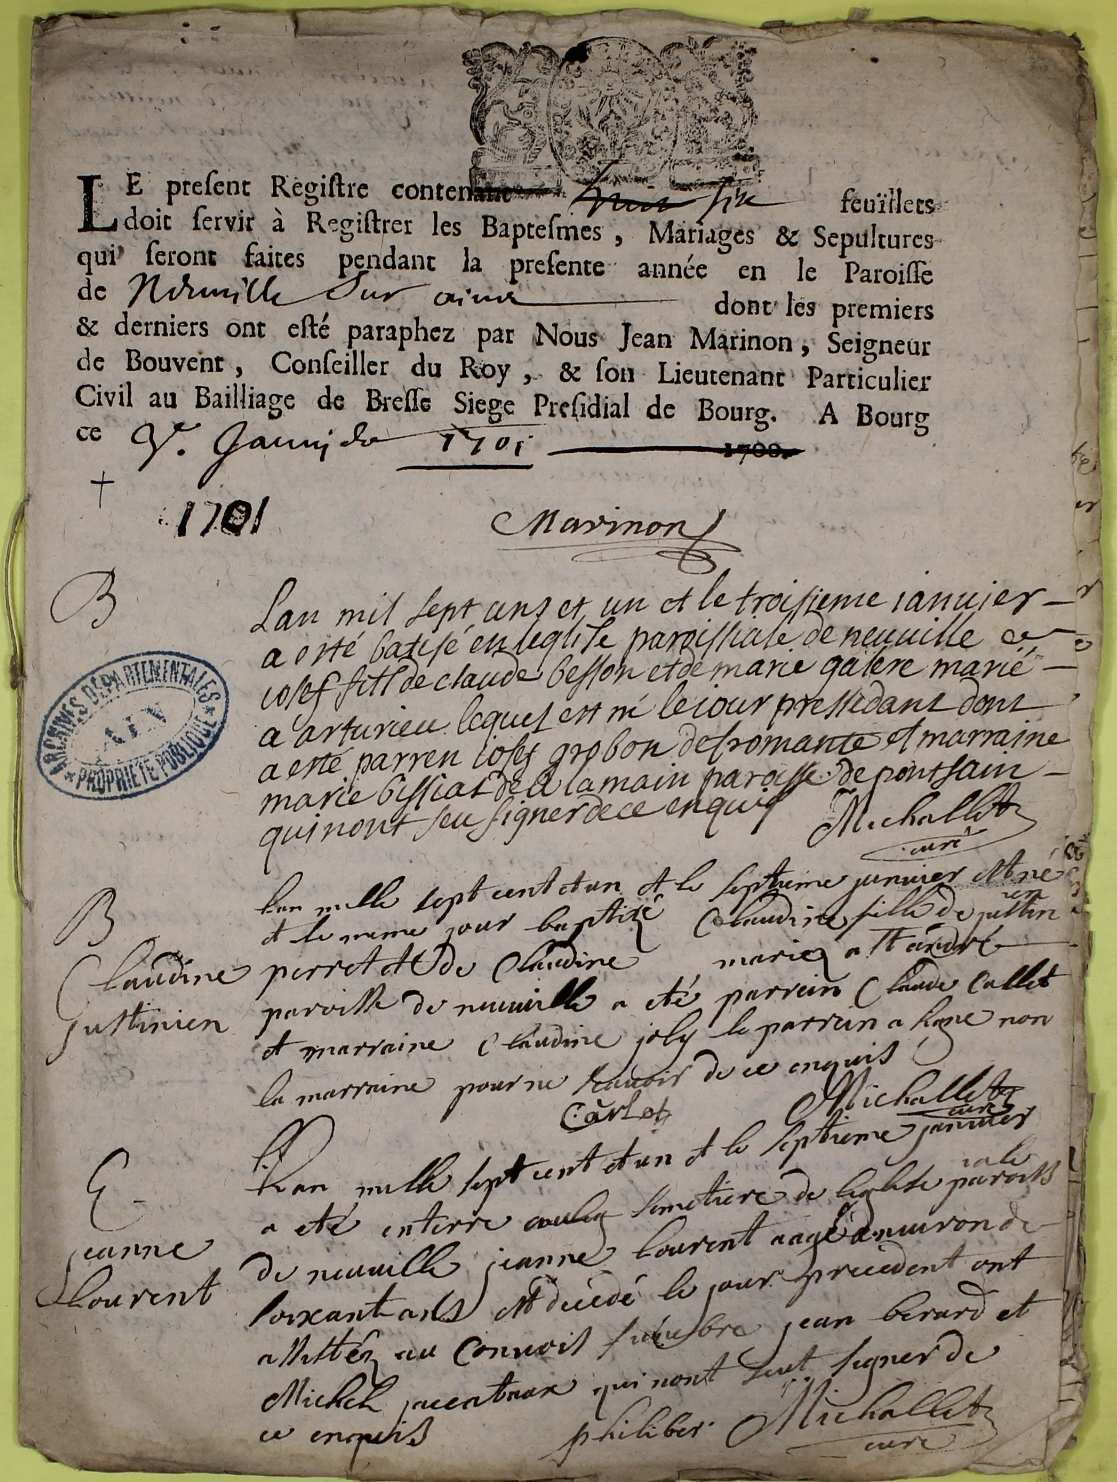 LE present Registre contenant six feüillets
doit servir à Registrer les Baptesmes, Mariages & Sepultures
qui seront faites pendant la presente année en le Paroisse
de Neuuille sur ains dont les premiers
& derniers ont esté paraphez par Nous Jean Marinon, Seigneur
de Bouvent, Conseiller du Roy, & son Lieutenant Particulier
Civil au Bailliage de Bresse Siege Presidial de Bourg. A Bourg
ce Januier 1701 1700.
1701
Marinon
B
Lan mil sept ans et un et le troisieme ianuier
a esté batisé en leglise paroissiale de neuuille
iosef fils de claude besson et de marie galere marié
a arturieu lequel est né le iour pressedant dont
a esté parren iosef grobon de romante et marraine
marie bissiat de la main paroisse de pont sain
qui nont seu signer de ce enquis
Michallet
curé
ARCHIVES DÉPARTEMENTALES
AIN
PROPRIÉTÉ PUBLIQUE
B
Claudine
justinien
Lan mille sept cent et un et le septieme januier est né
et le meme jour baptizé Claudine fille de justin
ien
perret et de Claudine mariez a st andré
paroisse de neuuille a eté parrein Claude Callet
et marraine Claudine joly le parrein a signe non
la marraine pour ne scauoir de ce enquis
Michallet
curé
E
jeanne
Lourent
Lan mille sept cent et un et le septieme januier
a eté enterre semetiere de leglise paroiss
iale
de neuuille jeanne Lourent aagé denuiron de
soixant ans est decedé le jour precedent ont
assistéz au Conuois funebre jean berard et
Michel qui nont seut signer de
ce enquis philiber Michallet
curé